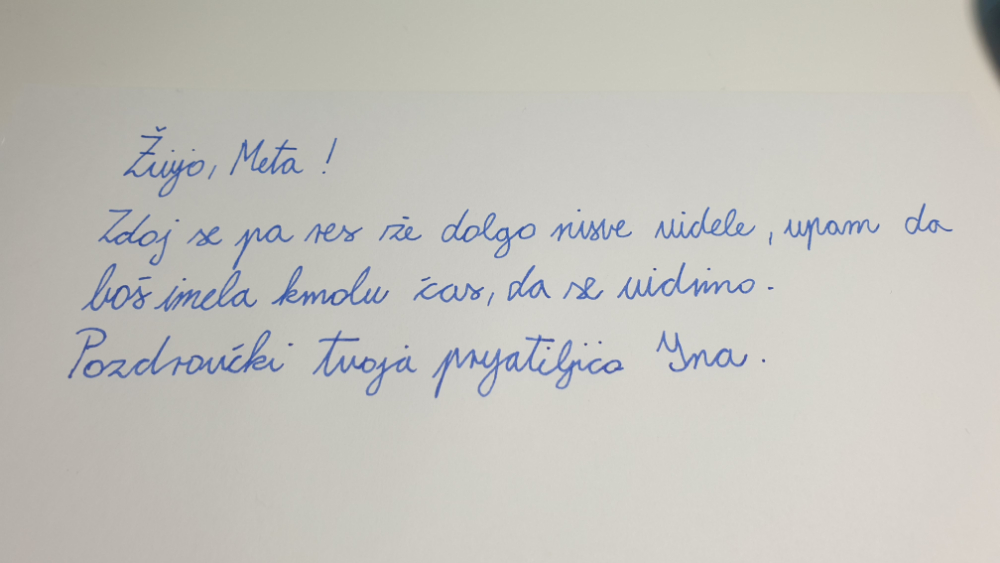 Živjo, Meta!
Zdaj se pa res že dolgo nisve videle, upam da
boš imela kmalu čas, da se vidimo.
Pozdravčki tvoja prijatiljica Ina.